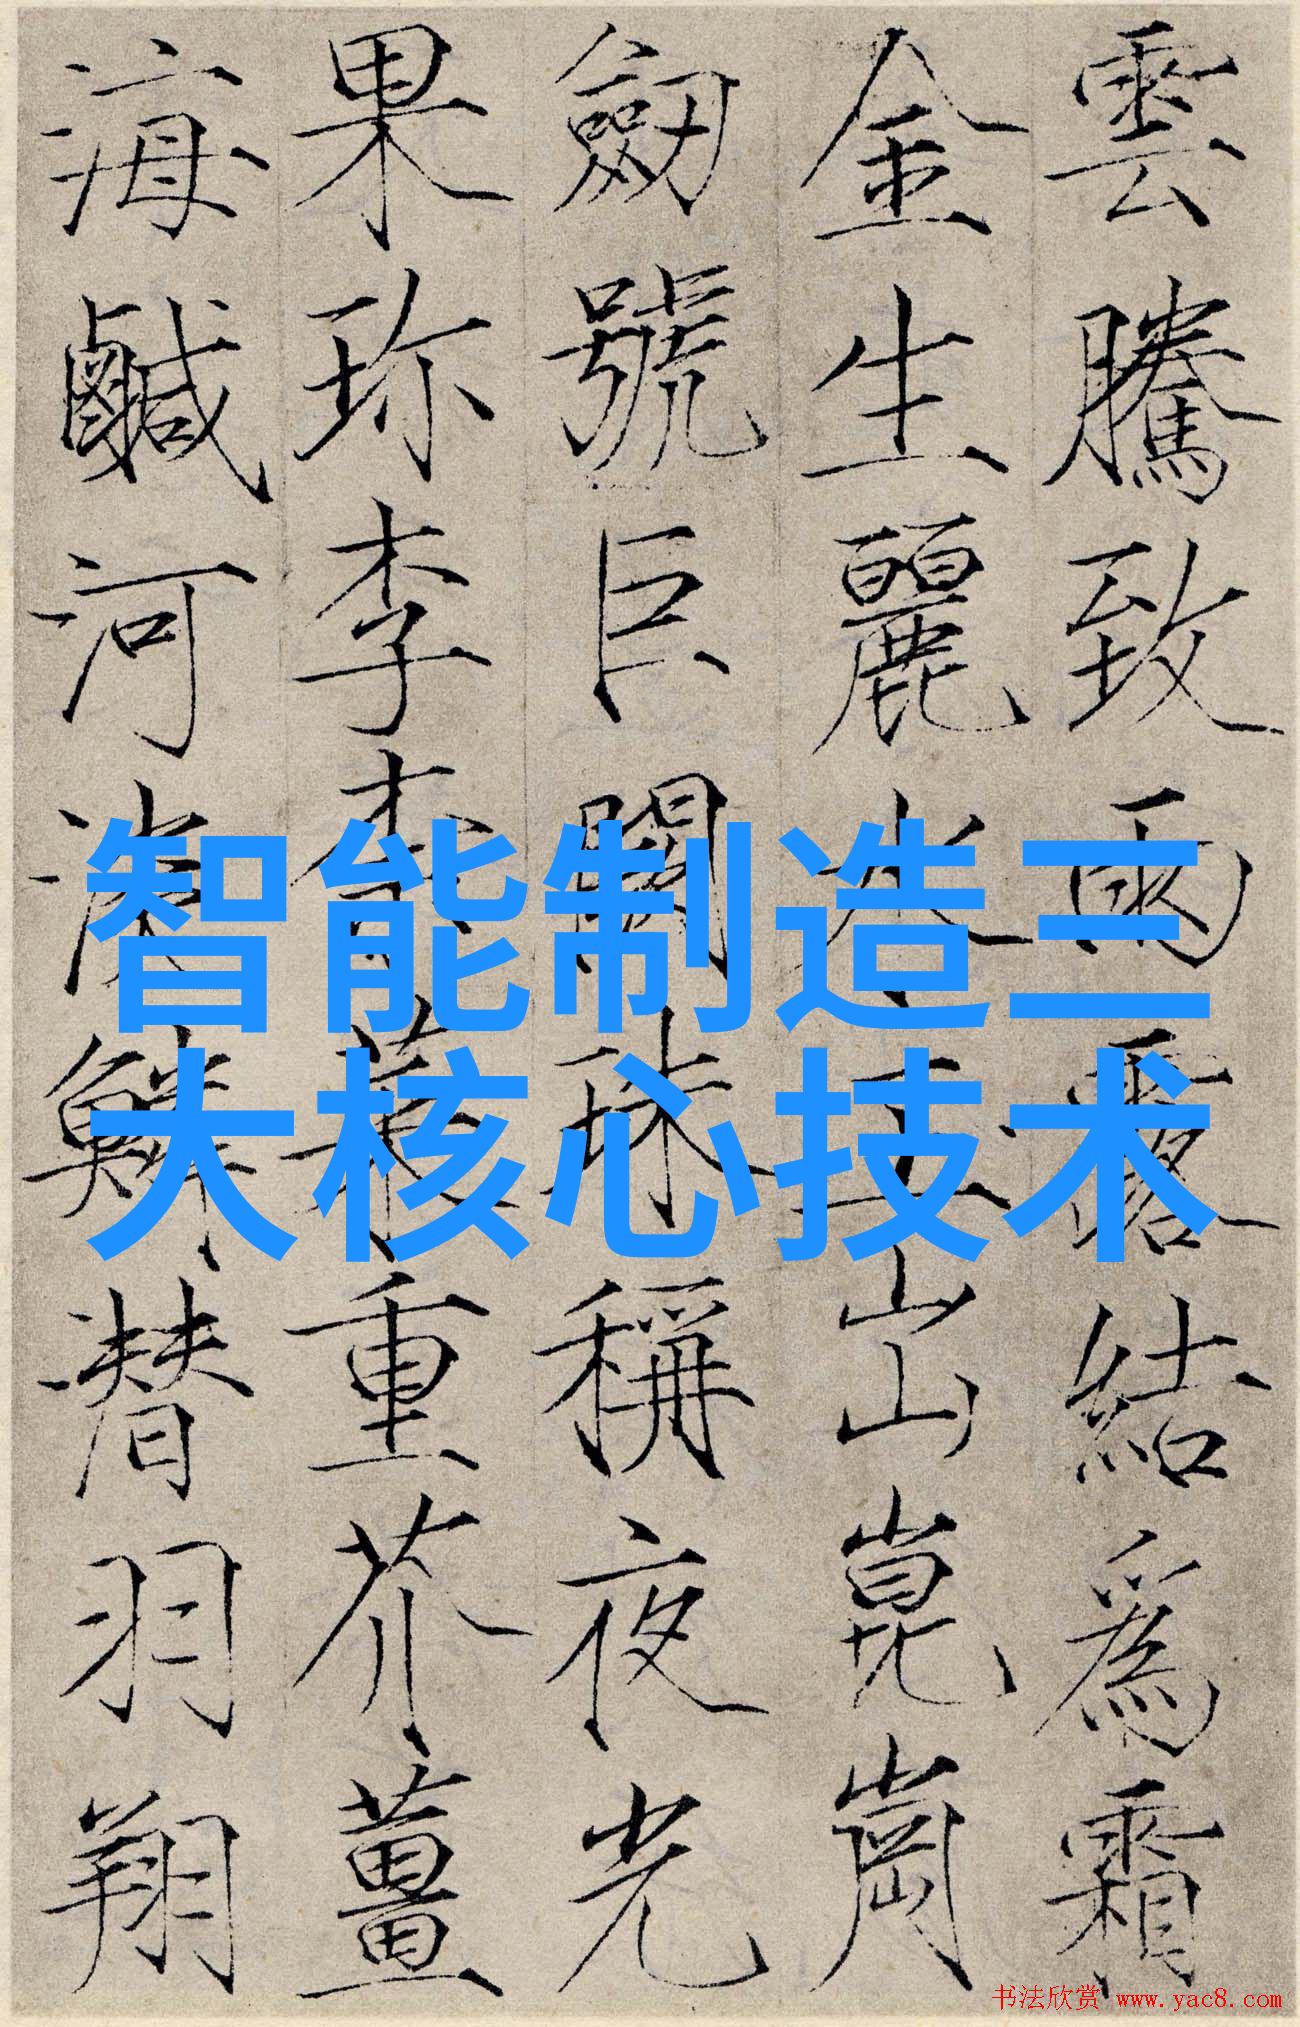 雲騰致雨露結爲霜
金生麗水玉出崑崗
劒號巨闕珠稱夜光
果珎李柰菜重芥薑
海鹹河淡鱗潜羽翔
智能制造三
大核心技术
书法欣赏 www.yac8.com